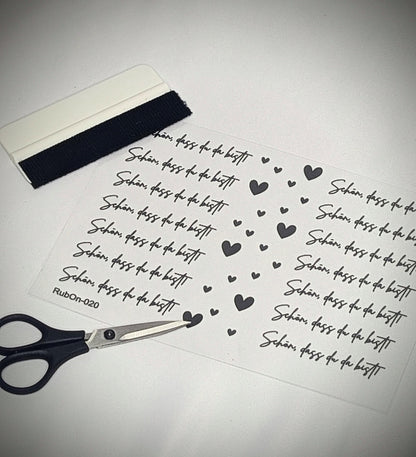 Schön, dass du da bist!
Schön, dass du da bist!
Schön, dass du da bist!
Schön, dass du da bist!
Schön, dass du da bist!
Schön, dass du da bist!
Schön, dass du da bist!
RubOn-020
Schön, dass du da
Schön, dass du da
Schön, dass du da
Schön, dass du da
Schön, dass du da bist!
Schön, dass du da bist!
Schön, dass du da bist!